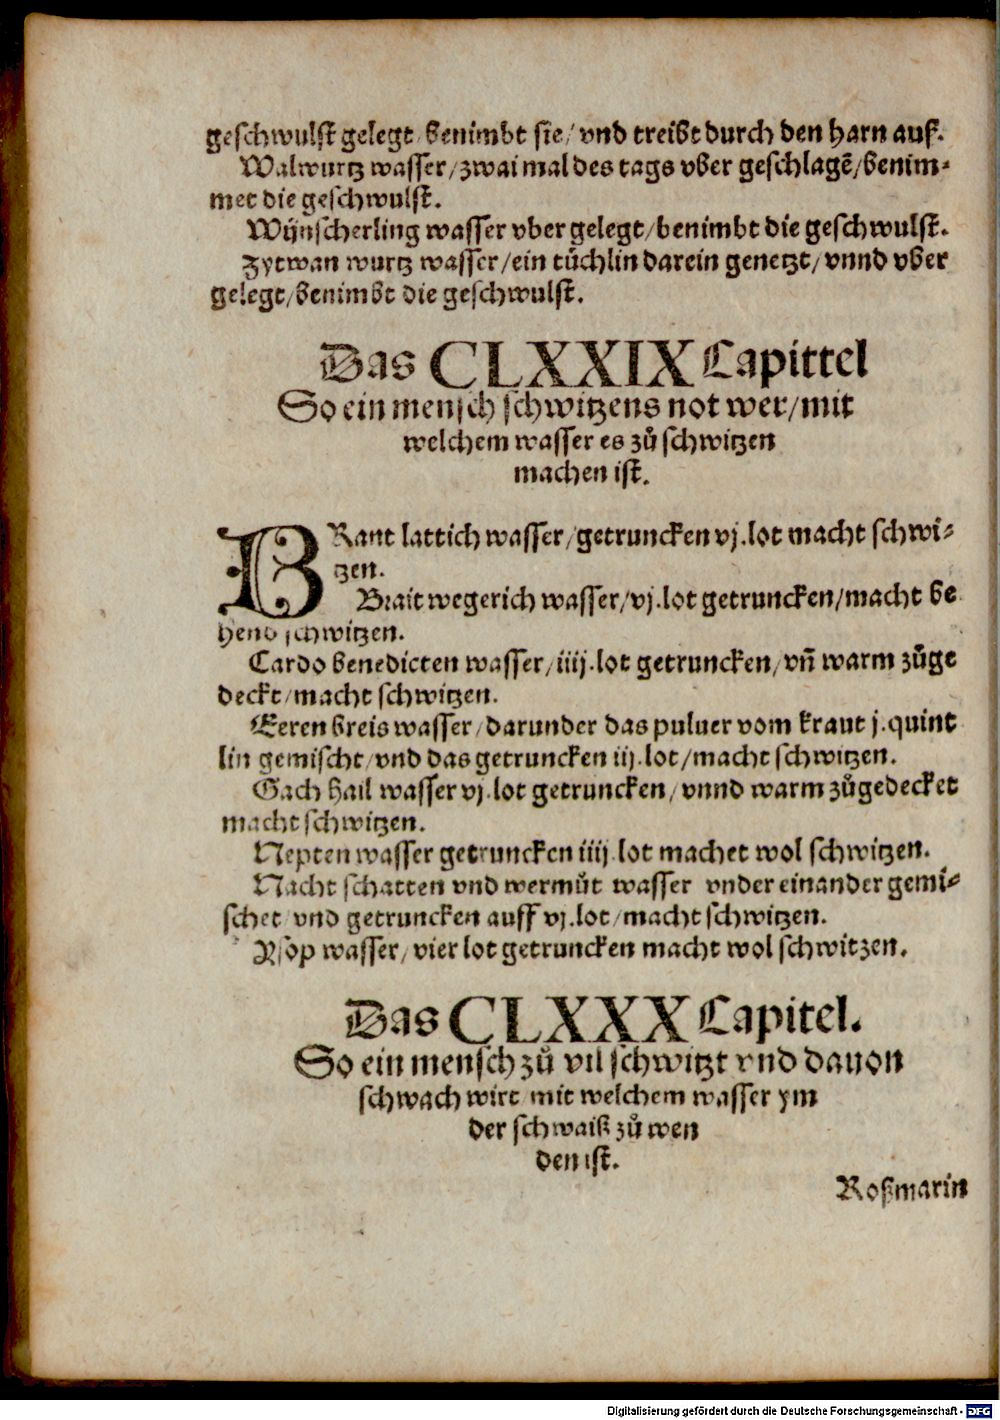 geschwulst gelegt/ benimbt sie/ vnd treibt durch den harn auß.
Walwurtz wasser/ zwai mal des tags vber geschlagē/ benim-
met die geschwulst.
Wynscherling wasser vber gelegt/ benimbt die geschwulst.
Zytwan wurtz wasser/ ein tüchlin darein genetzt/ vnnd vber
gelegt/ benimbt die geschwulst.
Das CLXXIX Capittel
So ein mensch schwitzens not wer/ mit
welchem wasser es zů schwitzen
machen ist.
BRant lattich wasser/ getruncken vj. lot macht schwi-
tzen.
Brait wegerich wasser/ vj. lot getruncken/ macht be
hend schwitzen.
Cardo benedicten wasser/ iiij. lot getruncken/ vñ warm zůge
deckt/ macht schwitzen.
Eeren breis wasser/ darunder das puluer vom kraut j. quint
lin gemischt/ vnd das getruncken iij. lot/ macht schwitzen.
Gach hail wasser vj. lot getruncken/ vnnd warm zůgedecket
macht schwitzen.
Nepten wasser getruncken iiij. lot machet wol schwitzen.
Nacht schatten vnd wermůt wasser vnder einander gemi-
schet vnd getruncken auff vj. lot/ macht schwitzen.
Ysop wasser/ vier lot getruncken macht wol schwitzen.
Das CLXXX Capitel.
So ein mensch zů vil schwitzt vnd dauon
schwach wirt mit welchem wasser ym
der schwaiß zů wen
den ist.
Roßmarin
Digitalisierung gefördert durch die Deutsche Forschungsgemeinschaft - DFG